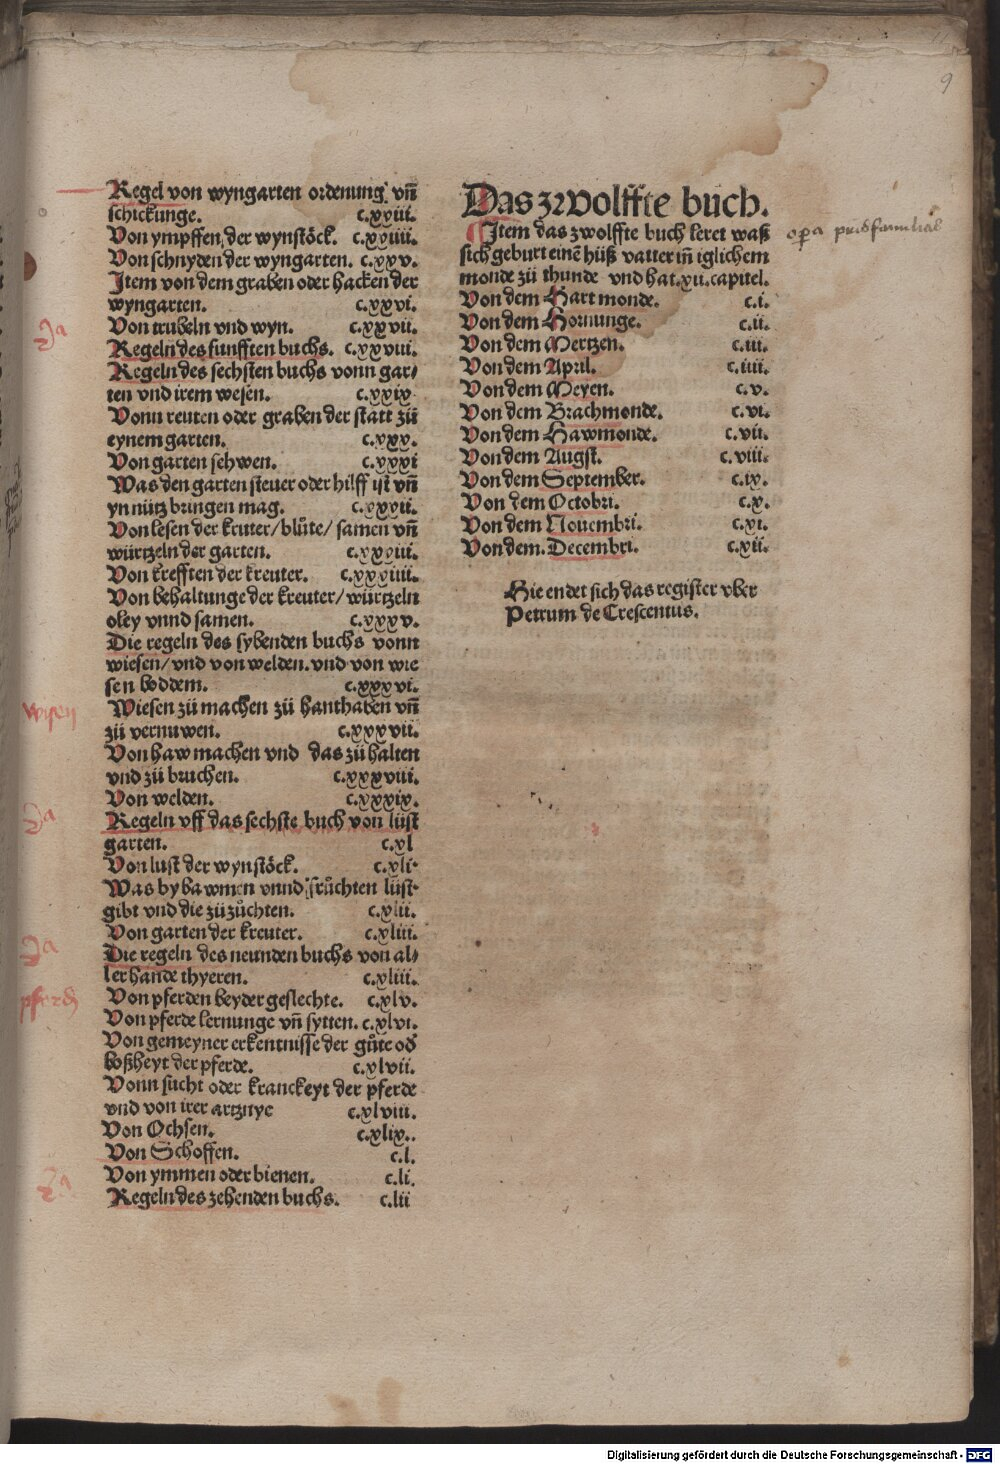 9
Regel von wyngarten ordenung vñ
schickunge. c.xxiii.
Von ympffen der wynstöck. c.xxiiii.
Von schnyden der wyngarten. c.xxv.
Item von dem graben oder hacken der
wyngarten. c.xxvi.
Von trubeln vnd wyn. c.xxvii.
Regeln des funfften buchs. c.xxviii.
Regeln des sechsten buchs vonn gar/
ten vnd irem wesen. c.xxix
Vonn reuten oder graben der statt zü
eynem garten. c.xxx.
Von garten sehwen. c.xxxi
Was den garten steuer oder hilff ist vñ
yn nütz bringen mag. c.xxxii.
Von lesen der kruter/blůte/samen vñ
würtzeln der garten. c.xxxiii.
Von krefften der kreuter. c.xxxiiii.
Von behaltunge der kreuter/würtzeln
oley vnnd samen. c.xxxv.
Die regeln des sybenden buchs vonn
wiesen/vnd von welden. vnd von wie
sen boddem. c.xxxvi.
Wiesen zü machen zü hanthaben vñ
zü vernuwen. c.xxxvii.
Von haw machen vnd das zü halten
vnd zü bruchen. c.xxxviii.
Von welden. c.xxxix.
Regeln vff das sechste buch von lüst
garten. c.xl
Von lust der wynstöck. c.xli.
Was by bawmen vnnd früchten lüst
gibt vnd die zü züchten. c.xlii.
Von garten der kreuter. c.xliii.
Die regeln des neunden buchs von al/
lerhande thyeren. c.xliiii.
Von pferden beyder geslechte. c.xlv.
Von pferde lernunge vñ sytten. c.xlvi.
Von gemeyner erkentnisse der gůte od
boßheyt der pferde. c.xlvii.
Vonn sucht oder kranckeyt der pferde
vnd von irer artznye c.xlviii.
Von Ochsen. c.xlix..
Von Schoffen. c.l.
Von ymmen oder bienen. c.li.
Regeln des zehenden buchs. c.lii
pferd
Das zwolffte buch.
Item das zwolffte buch leret waß
sich geburt einē hüß vatter iñ iglichem
monde zü thunde vnd hat.xii.capitel.
Von dem Hart monde. c.i.
Von dem Hornunge. c.ii.
Von dem Mertzen. c.iii.
Von dem April. c.iiii.
Von dem Meyen. c.v.
Von dem Brachmonde. c.vi.
Von dem Hawmonde. c.vii.
Von dem Augst. c.viii.
Von dem September. c.ix.
Von dem Octobri. c.x.
Von dem Nouembri. c.xi.
Von dem. Decembri. c.xii.
Hie endet sich das register vber
Petrum de Crescentiis.
Digitalisierung gefördert durch die Deutsche Forschungsgemeinschaft - DFG